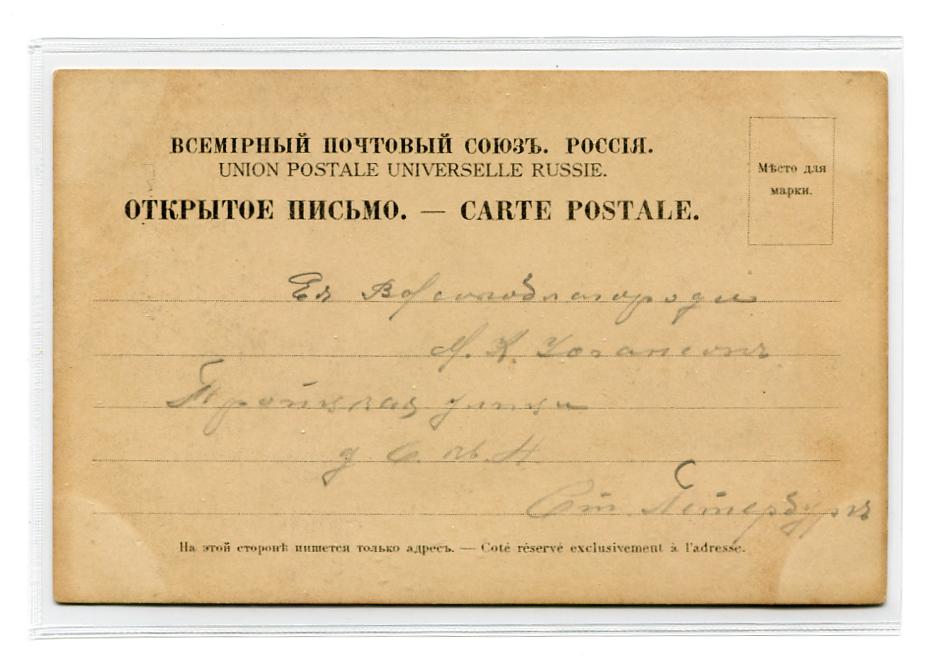 ВСЕМІРНЫЙ ПОЧТОВЫЙ СОЮЗЪ. РОССІЯ.
UNION POSTALE UNIVERSELLE RUSSIE.
ОТКРЫТОЕ ПИСЬМО. — CARTE POSTALE.
Мѣсто для
марки.
Ея Высокоблагородiю
М. К. Иогансонъ
Троицкая улица
д
Ст. Петербургъ
На этой сторонѣ пишется только адресъ. — Coté réservé exclusivement à l'adresse.